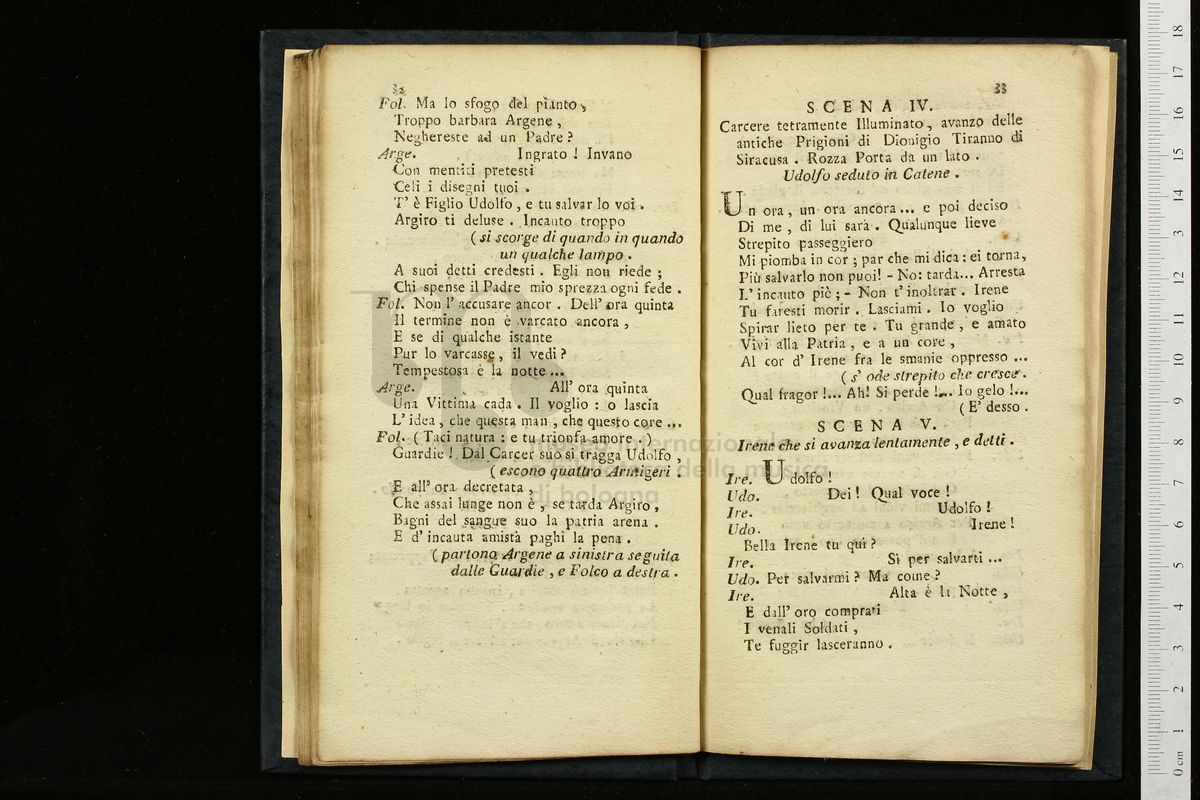 32
Fol. Ma lo sfogo del pianto,
Troppo barbara Argene,
Neghereste ad un Padre?
Arge. Ingrato! Invano
Con mentiti pretesti
Celi i disegni tuoi.
T' è Figlio Udolfo, e tu salvar lo voi.
Argiro ti deluse. Incauto troppo
(si scorge di quando in quando
un qualche lampo.
A suoi detti credesti. Egli non riede;
Chi spense il Padre mio sprezza ogni fede.
Fol. Non l' accusare ancor. Dell' ora quinta
Il termine non è varcato ancora,
E se di qualche istante
Pur lo varcasse, il vedi?
Tempestosa è la notte...
Arge. All' ora quinta
Una Vittima cada. Il voglio: o lascia
L' idea, che questa man, che questo core...
Fol. (Taci natura: e tu trionfa amore.)
Guardie! Dal Carcer suo si tragga Udolfo,
(escono quattro Armigeri.
E all' ora decretata,
Che assai lunge non è, se tarda Argiro,
Bagni del sangue suo la patria arena.
E d' incauta amistà paghi la pena.
(partono Argene a sinistra seguita
dalle Guardie, e Folco a destra.
33
SCENA IV.
Carcere tetramente Illuminato, avanzo delle
antiche Prigioni di Dionigio Tiranno di
Siracusa. Rozza Porta da un lato.
Udolfo seduto in Catene.
Un ora, un ora ancora... e poi deciso
Di me, di lui sarà. Qualunque lieve
Strepito passeggiero
Mi piomba in cor; par che mi dica: ei torna,
Più salvarlo non puoi! - No: tarda... Arresta
L' incauto piè; - Non t' inoltrar. Irene
Tu faresti morir. Lasciami. Io voglio
Spirar lieto per te. Tu grande, e amato
Vivi alla Patria, e a un core,
Al cor d' Irene fra le smanie oppresso...
(s' ode strepito che cresce.
Qual fragor!... Ah! Si perde!... Io gelo!...
(E' desso.
SCENA V.
Irene che si avanza lentamente, e detti.
Ire. Udolfo!
Udo. Dei! Qual voce!
Ire. Udolfo!
Udo. Irene!
Bella Irene tu qui?
Ire. Sì per salvarti...
Udo. Per salvarmi? Ma come?
Ire. Alta è la Notte,
E dall' oro comprati
I venali Soldati,
Te fuggir lasceranno.
museo internazionale
della musica
di bologna
0 cm 1 2 3 4 5 6 7 8 9 10 11 12 13 14 15 16 17 18